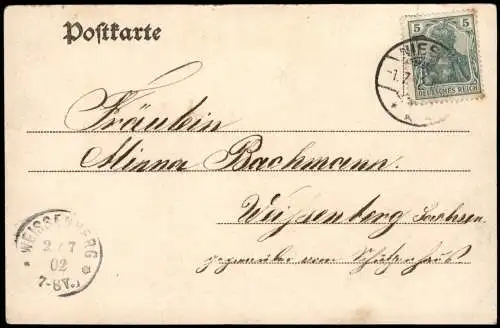 Postkarte
5 5
DEUTSCHES REICH
NIES
Fräulein
Minna Bachmann.
Weissenberg Sachsen
gegenüber vom Schützenhaus
WEISSENBERG
2/7
02
7-8V.